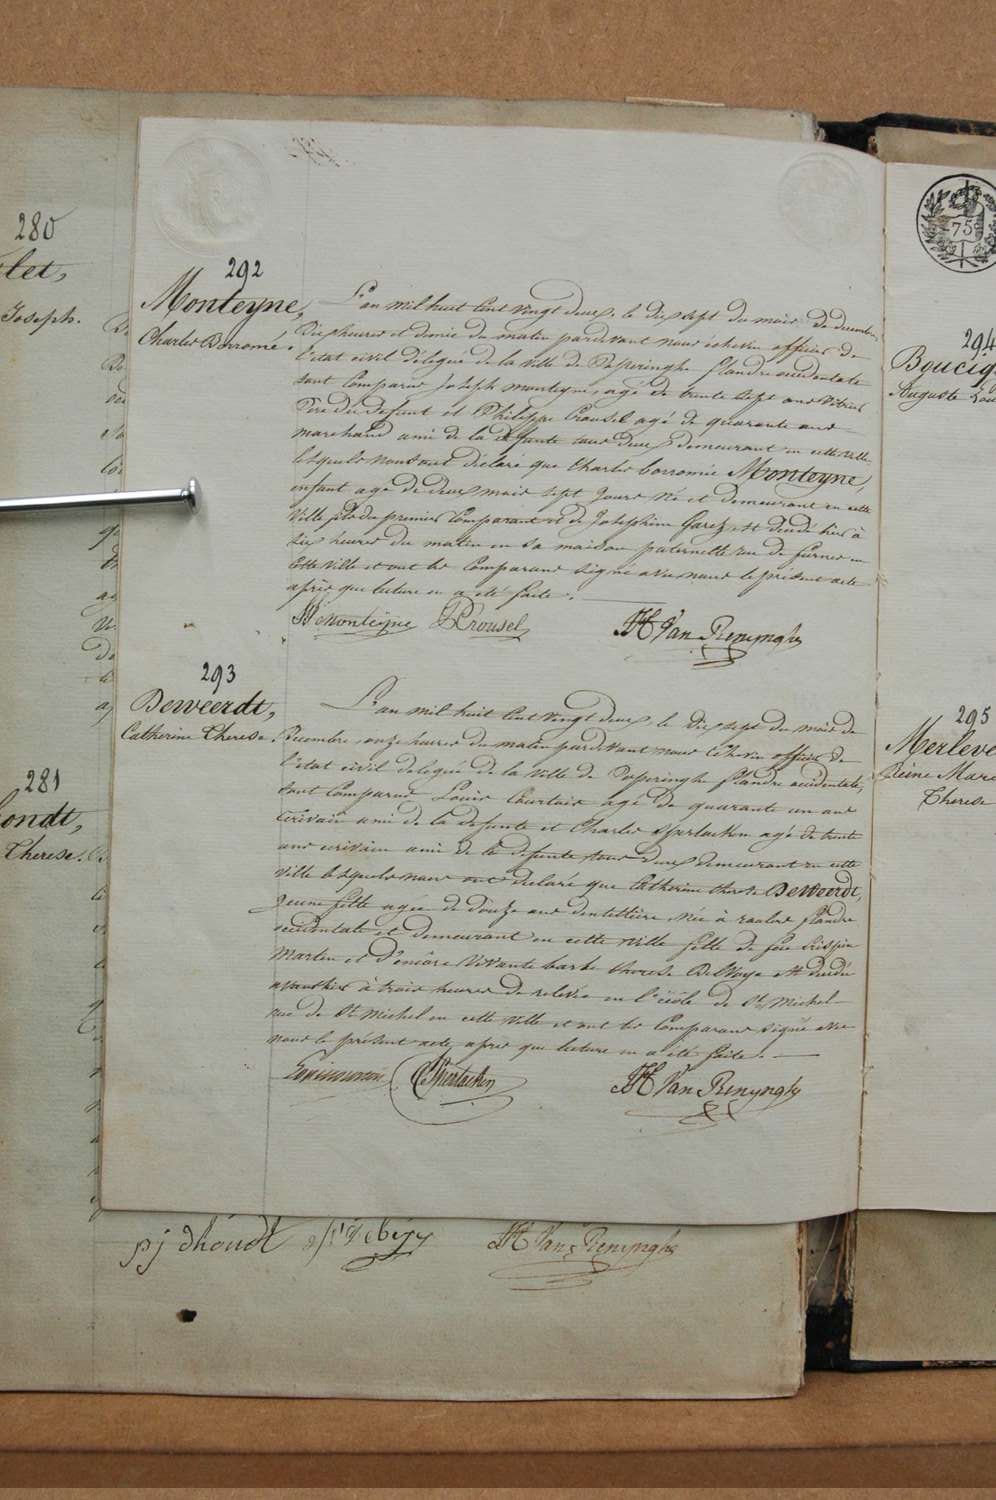 280
let,
Joseph.
281
ondt,
Therese.
292
Monteyne,
Charles Borromé.
L'an mil huit cent vingt deux, le dix sept du mois de decembre
dix heures et demie du matin pardevant nous échevin officier de
l'etat civil délégué de la ville de Poperinghe flandre occidentale
sont comparus Joseph monteyne, agé de trente sept ans vitrier
Père du defunt et Philippe Crousel agé de quarante ans
marchand ami de la defunte tous deux demeurant en cette ville
lesquels nous ont déclaré que Charles borromée Monteyne,
enfant agé de deux mois sept jours né et demeurant en cette
ville fils du premier comparant et de Josephine Garez est decédé hier à
six heures du matin en sa maison paternelle rue de furnes en
cette ville et ont les comparans signé avec nous le présent acte
après que lecture en a été faite.
Monteÿne PCrousel JH Van Renynghe
293
Deweerdt,
Catherine Therese.
L'an mil huit cent vingt deux, le dix sept du mois de
Decembre, onze heures du matin pardevant nous échevin officier de
l'état civil delegué de la ville de Poperinghe flandre occidentale,
sont comparus Louis Courtois agé de quarante un ans
écrivain ami de la defunte et Charles Sperlacken agé de trente
ans écrivain ami de la defunte tous deux demeurant en cette
ville lesquels nous ont declaré que Catherine therese Deweerdt,
jeune fille agée de douze ans dentellière née à flandre
occidentale et demeurant en cette ville fille de feu
Martin et d'encore vivante barbe therese est decedée
avanthier à trois heures de relevée en l'école de St. Michel
rue de St Michel en cette ville et ont les comparans signé avec
nous le présent acte après que lecture en a été faite.
CSperlacken JH Van Renynghe
pj dhondt JH Van Renynghe
75
294
Bouciq
Auguste Lou
295
Merleve
Reine Marie
Therese